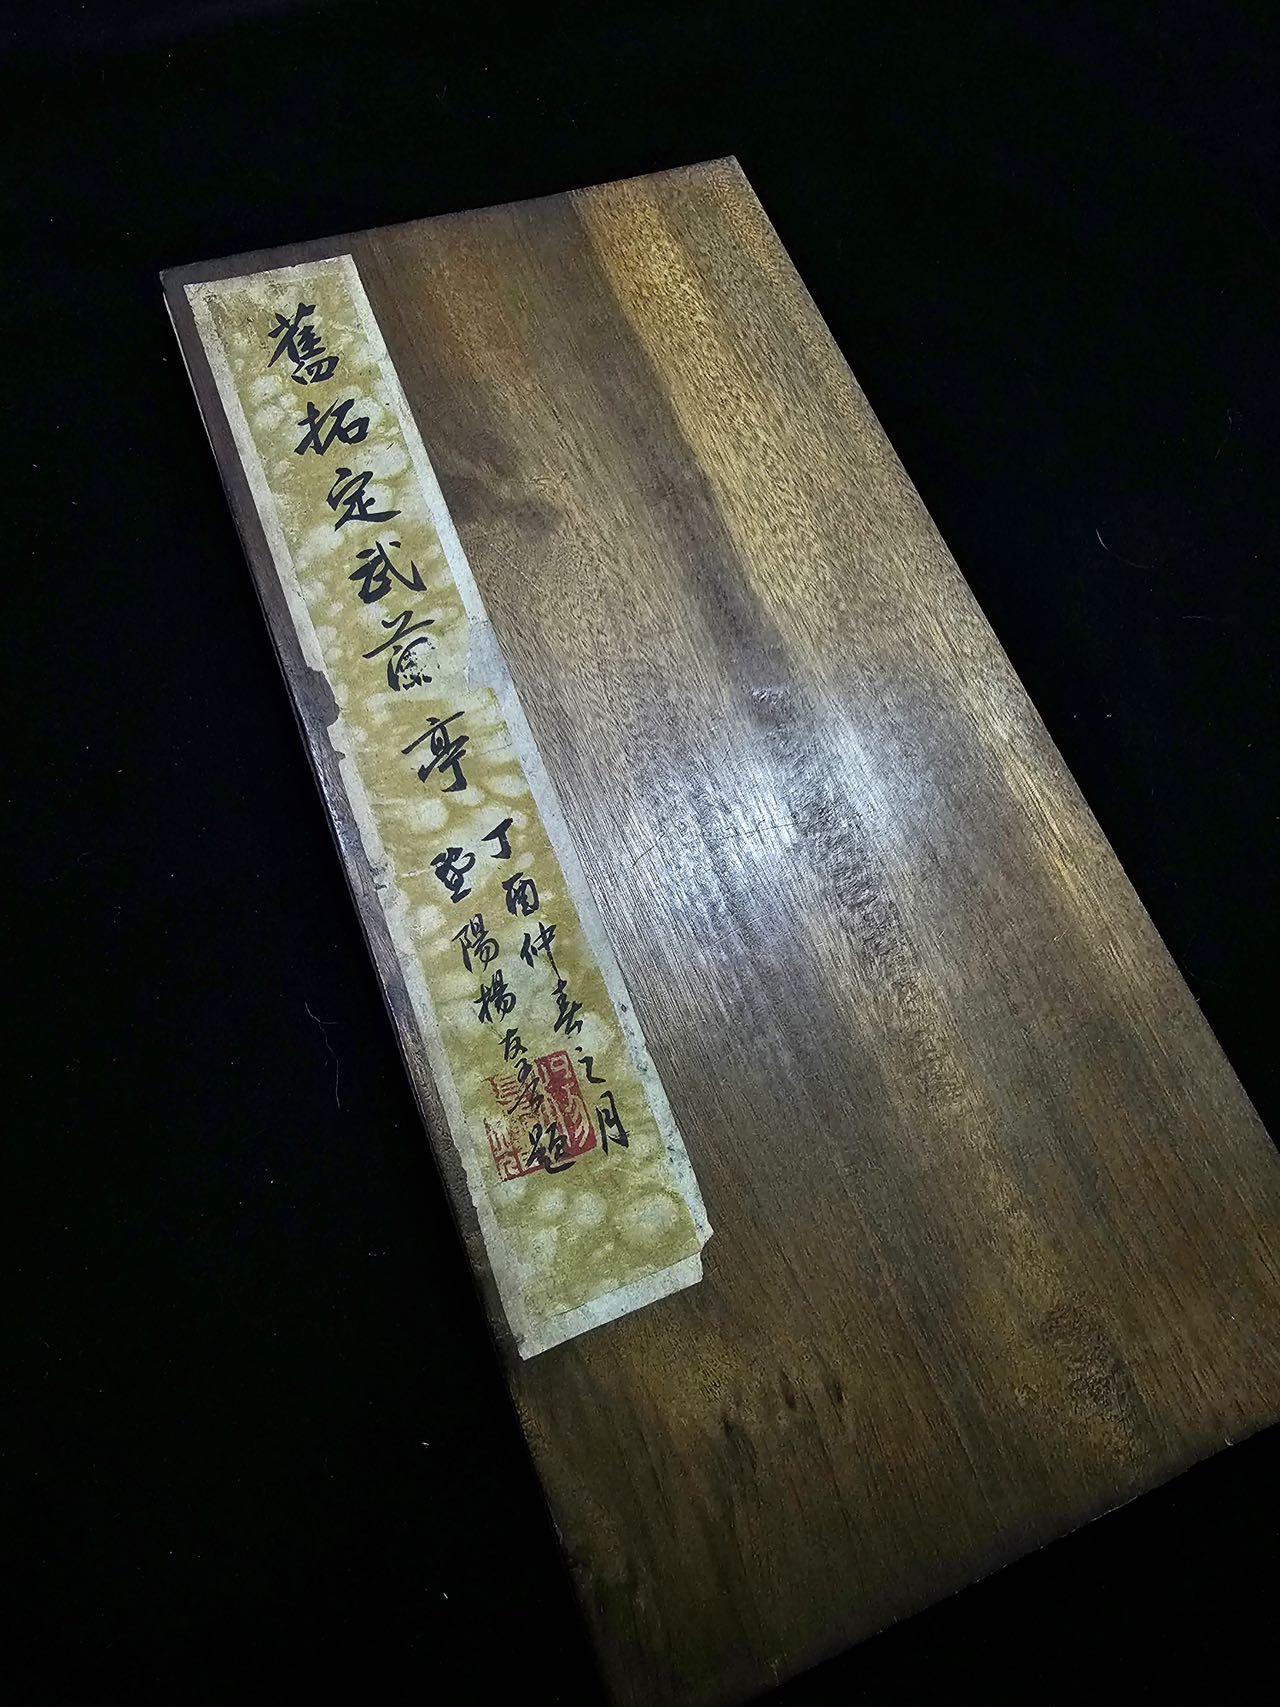 舊拓定武蘭亭
丁酉仲春之月
陽楊友題